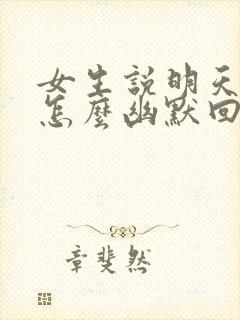 女生説明天
怎麼幽默回
章斐然